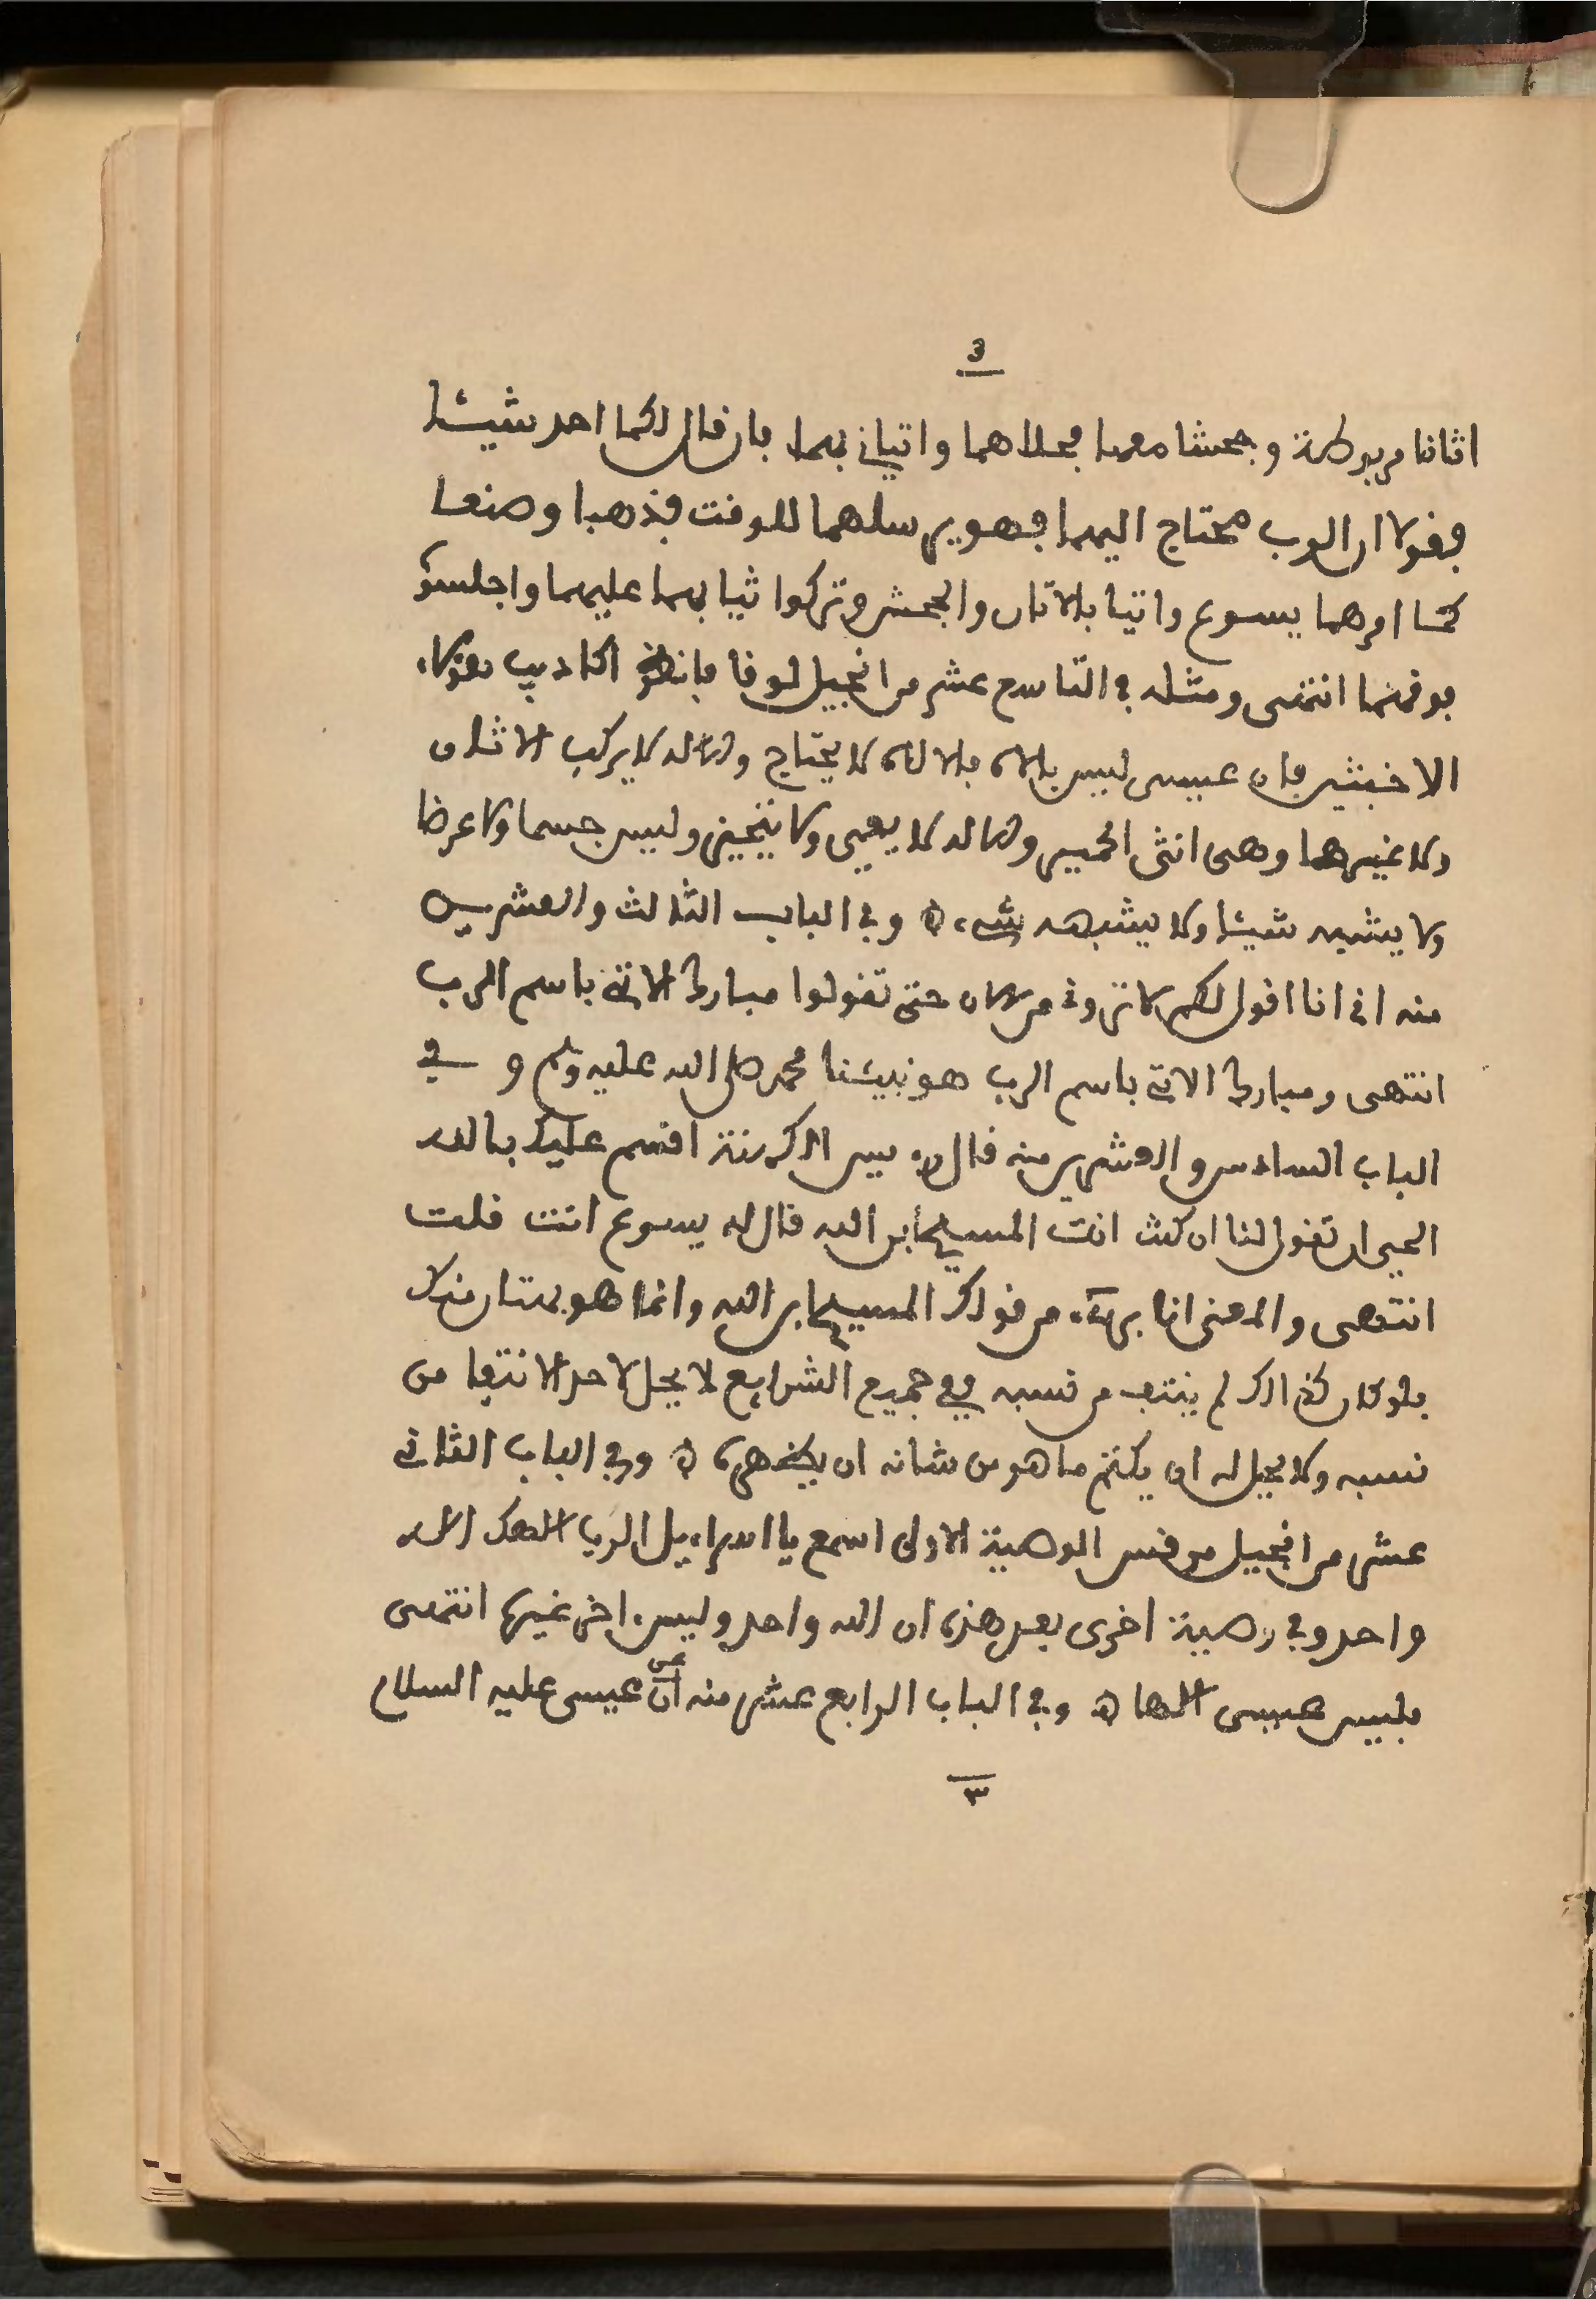 3
اتانا مربوطة وجحشا معها فحلاهما واتياني بهما فان قال لكما احد شيئا
فقولا ان الرب محتاج اليهما فهو يرسلهما للوقت فذهبا وصنعا
كما امرهما يسوع واتيا بالاتان والجحش وتركوا ثيابهما عليهما واجلسوه
فوقهما انتهى ومثله في التاسع عشر من انجيل لوقا فانظر اكاذيب هؤلاء
الاخبثين فان عيسى ليس بالاه فالالاه لا يحتاج والاله لا يركب الاتان
ولا غيرها وهي انثى الحمير والاله لا يعيى ولا يتحيز وليس جسما ولا عرضا
ولا يشبه شيئا ولا يشبهه شيء ه وفي الباب الثالث والعشرين
منه اني انا اقول لكم لا تروني من الان حتى تقولوا مبارك الاتي باسم الرب
انتهى ومبارك الاتي باسم الرب هو نبيئنا محمد صلى الله عليه وسلم و في
الباب السادس والعشرين منه قال رءيس الكهنة اقسم عليك بالله
الحي ان تقول لنا ان كنت انت المسيح ابن الله قال له يسوع انت قلت
انتهى والمعنى انا بريء من قولك المسيح ابن الله وانما هو بهتان منك
فلو كان كذالك لم ينتف من نسبه ففي جميع الشرايع لا يحل لاحد الانتفا من
نسبه ولا يحل له ان يكتم ما هو من شانه ان يظهره ه وفي الباب الثاني
عشر من انجيل مرقس الوصية الاولى اسمع يا اسراءيل الرب الهك اله
واحد وفي وصية اخرى بعد هذه ان الله واحد وليس ءاخر غيره انتهى
فليس عيسى الها ه وفي الباب الرابع عشر منه ان عيسى عليه السلام
٣